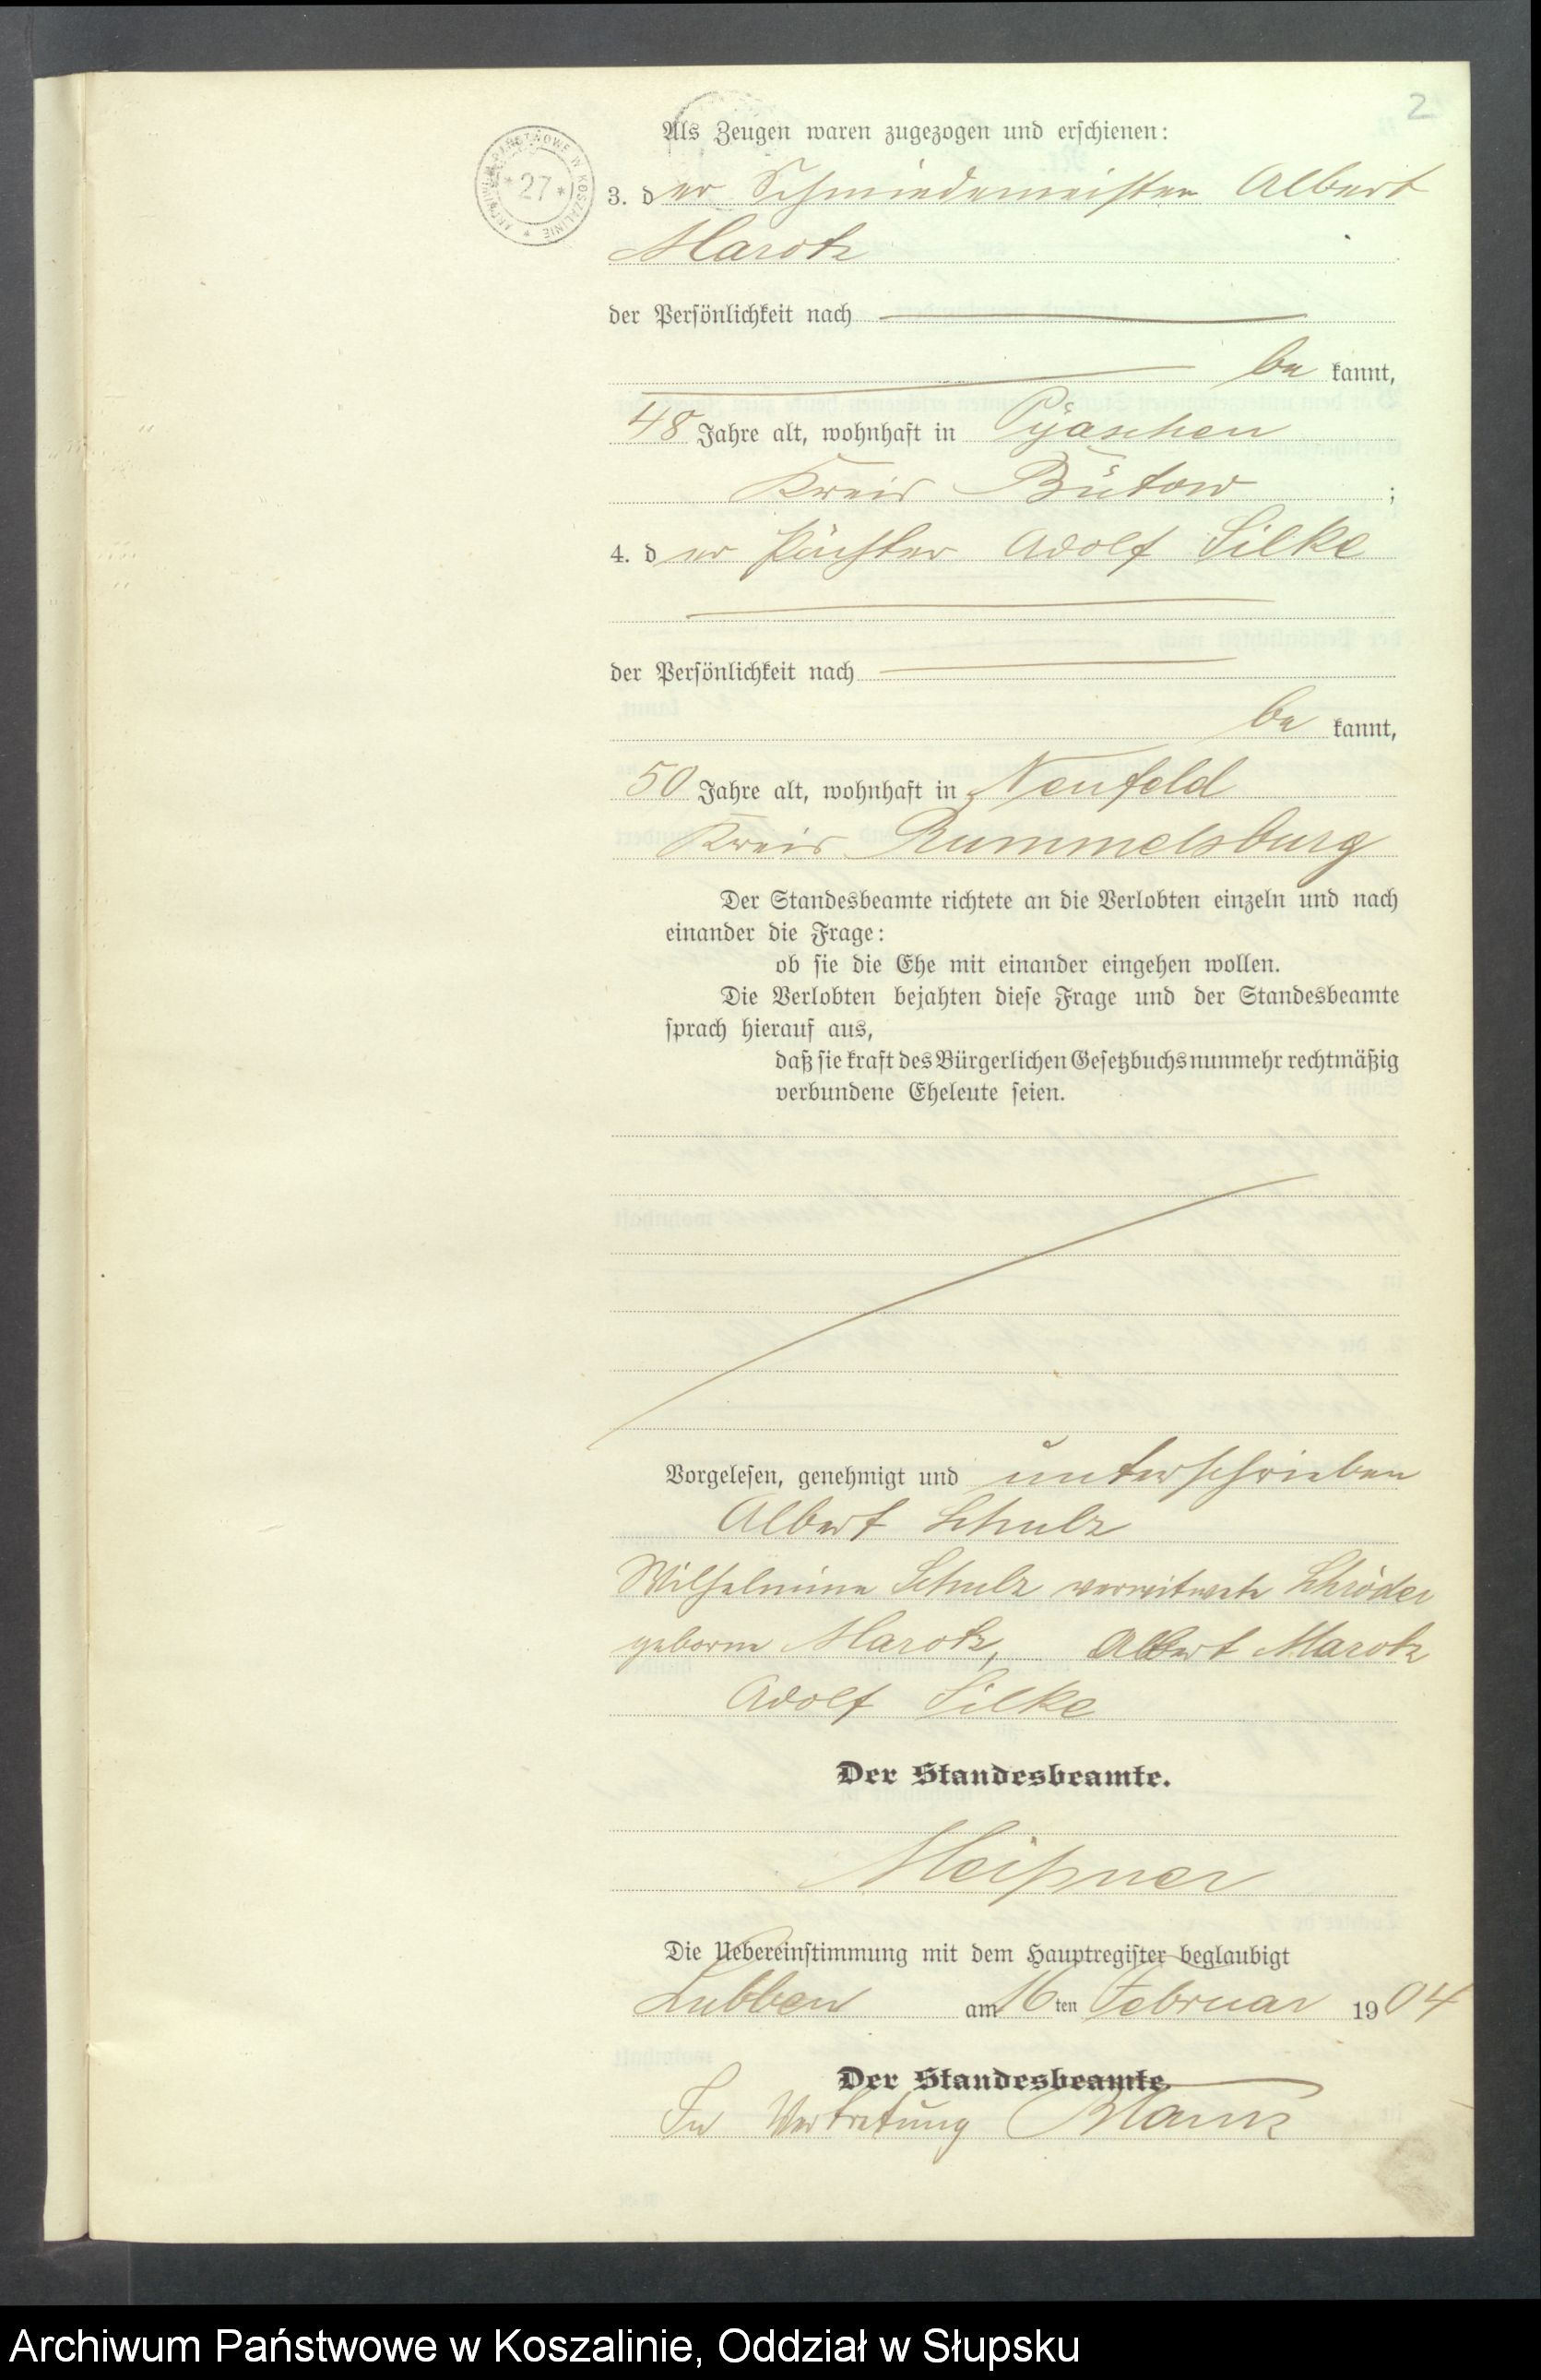 2
Als Zeugen waren zugezogen und erschienen:
ARCHIWUM PAŃSTWOWE W KOSZALINIE * 27 *
3. der Schmiedemeister Albert
Marotz
der Persönlichkeit nach
be kannt,
48 Jahre alt, wohnhaft in Pyaschen
Kreis Bütow ;
4. der Pächter Adolf Silke
der Persönlichkeit nach
be kannt,
50 Jahre alt, wohnhaft in Neufeld
Kreis Rummelsburg
Der Standesbeamte richtete an die Verlobten einzeln und nach
einander die Frage:
ob sie die Ehe mit einander eingehen wollen.
Die Verlobten bejahten diese Frage und der Standesbeamte
sprach hierauf aus,
daß sie kraft des Bürgerlichen Gesetzbuchs nunmehr rechtmäßig
verbundene Eheleute seien.
Vorgelesen, genehmigt und unterschrieben
Albert Schulz
Wilhelmine Schulz verwitwete Schröder
geborne Marotz, Albert Marotz
Adolf Silke
Der Standesbeamte.
Meißner
Die Uebereinstimmung mit dem Hauptregister beglaubigt
Lubben am 16ten Februar 1904
Der Standesbeamte
In Vertretung
Archiwum Państwowe w Koszalinie, Oddział w Słupsku